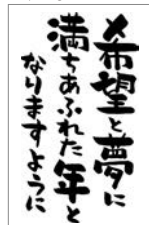 希望と夢に
満ちあふれた年と
なりますように